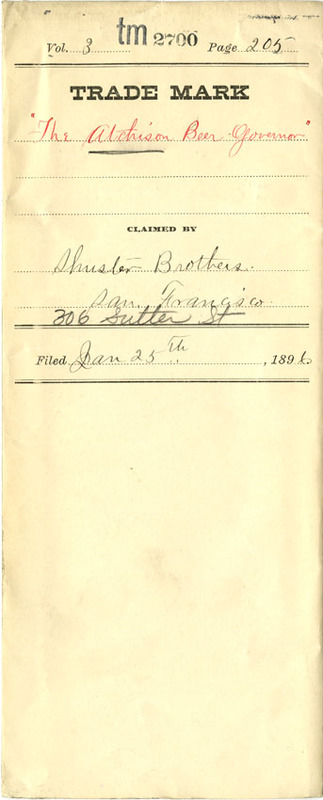 Vol. 3 tm 2700 Page 205
TRADE MARK
"The Atchison Beer Governor"
CLAIMED BY
Shuster Brothers.
San Francisco.
306 Sutter St
Filed Jan 25th, 1896.